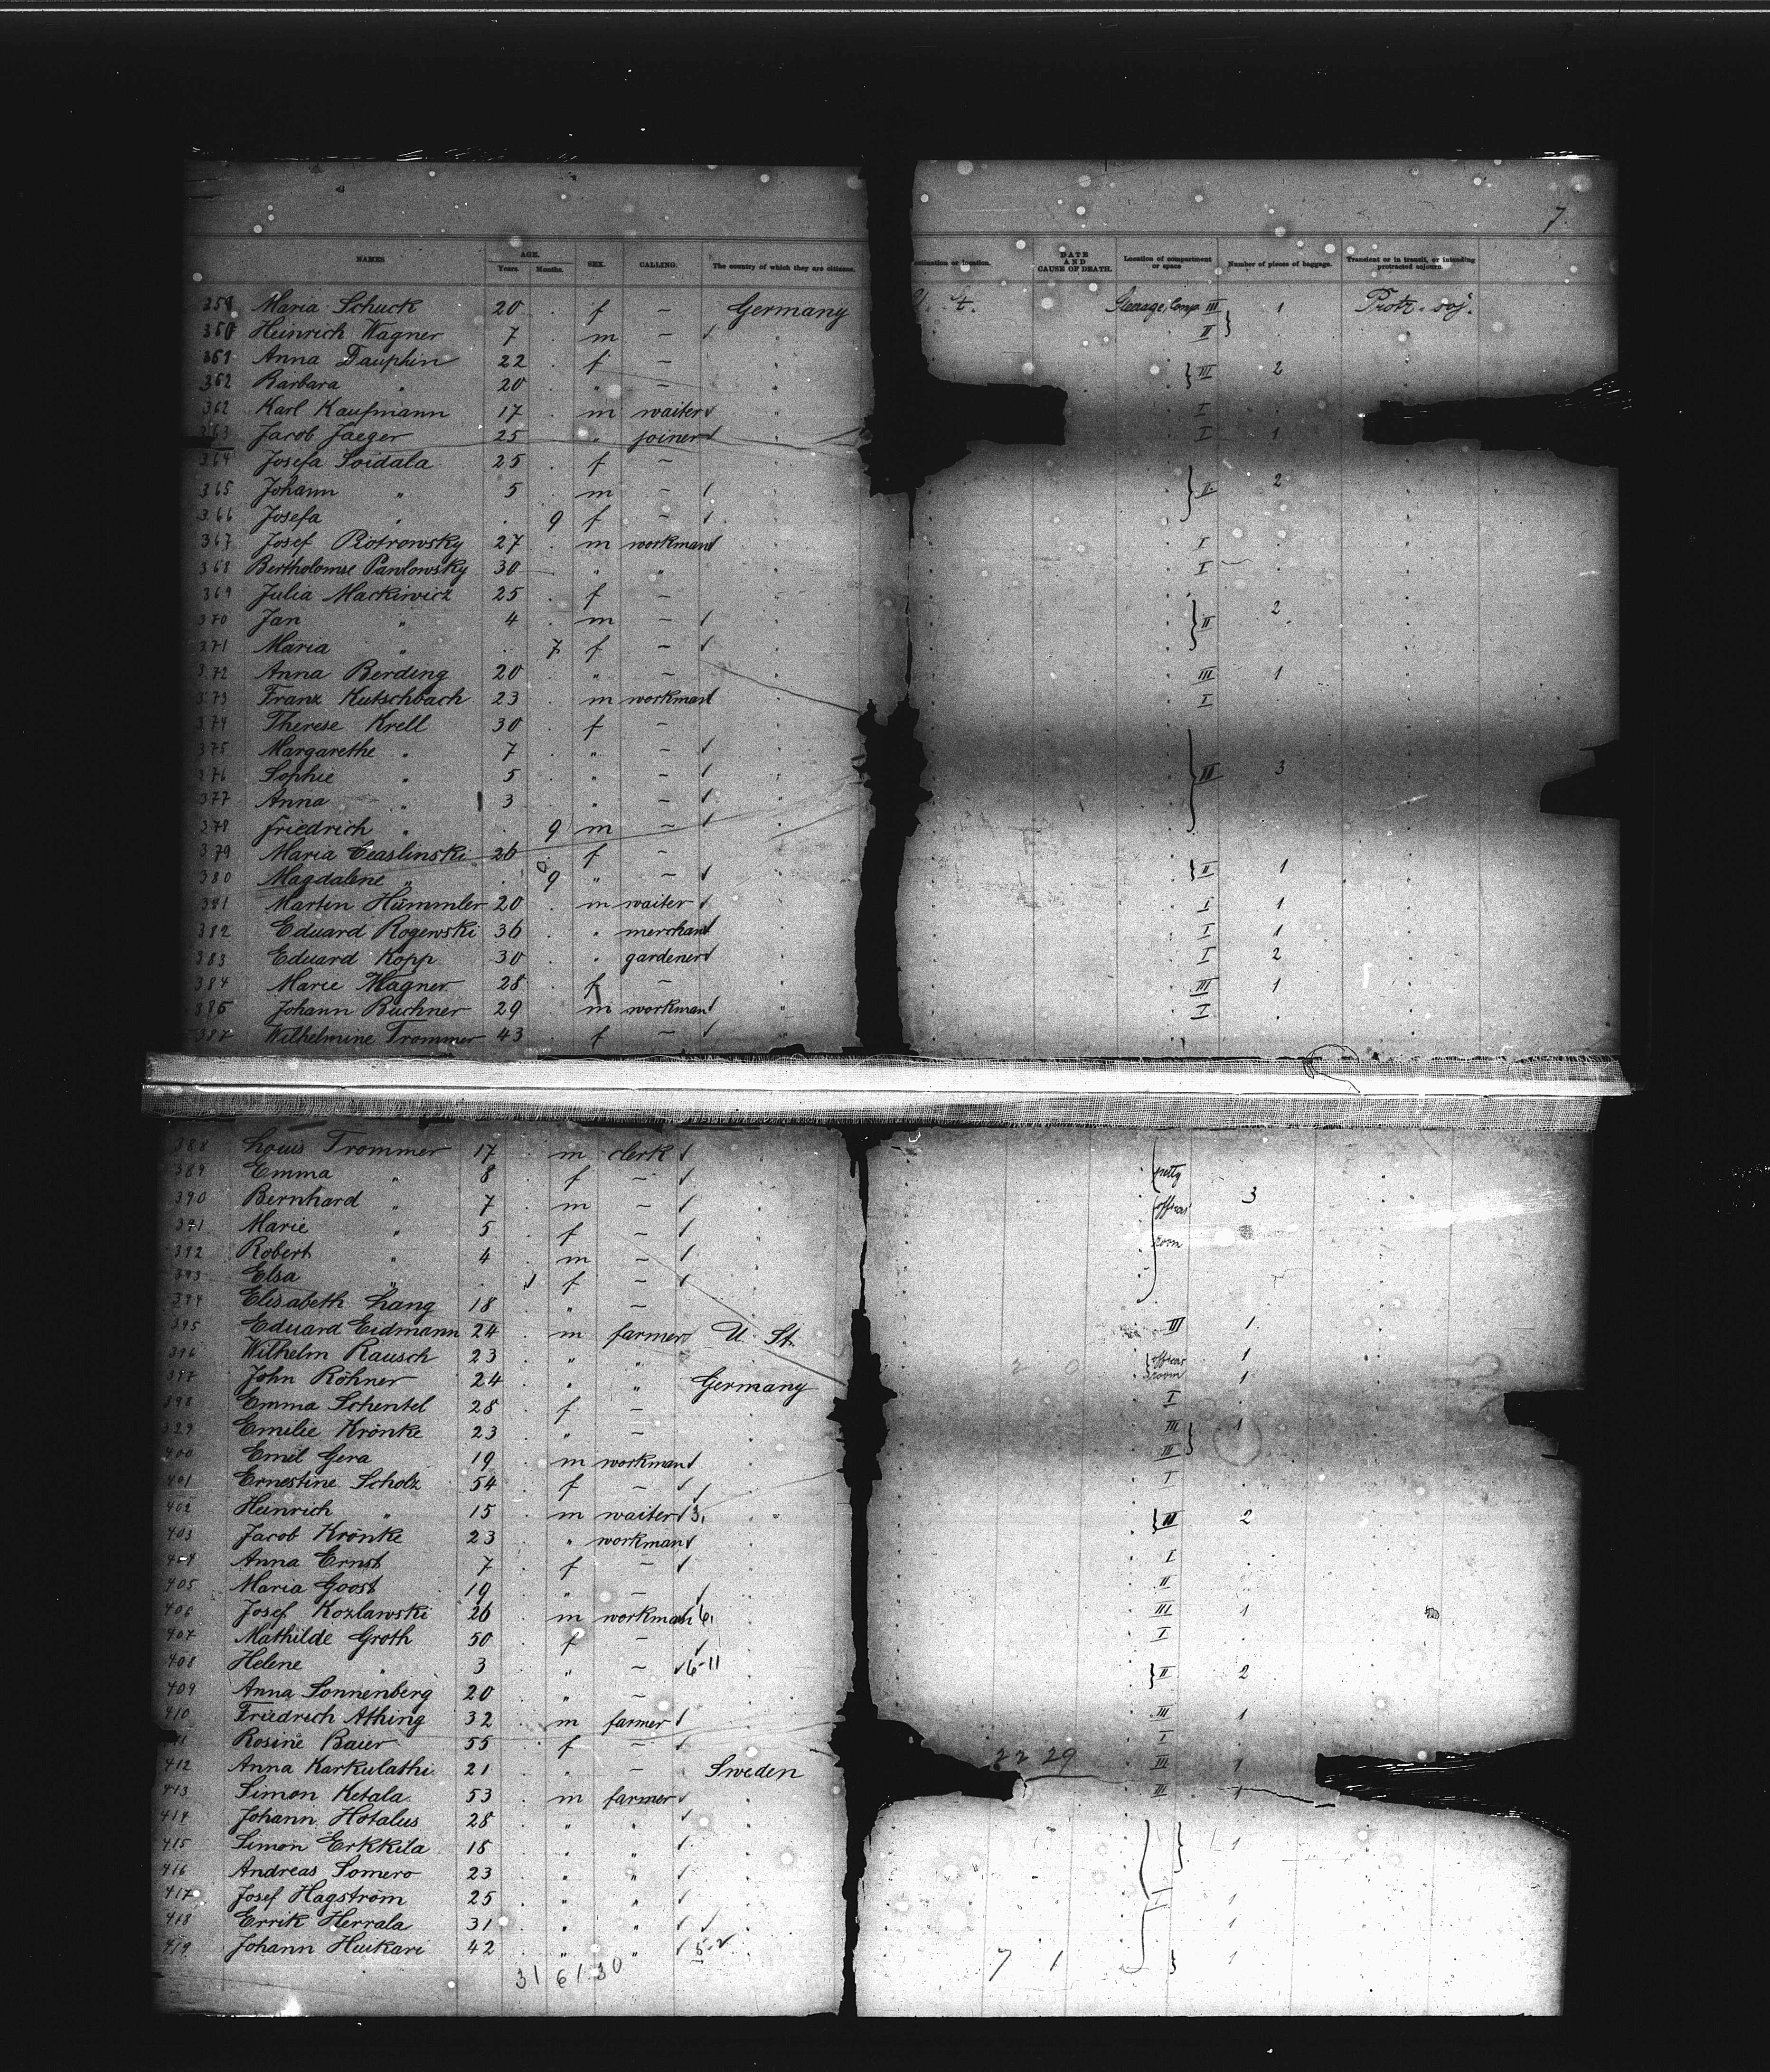 7.
NAMES AGE. Years Months. SEX. CALLING. The country of which they are citizens. DATE AND CAUSE OF DEATH. Location of compartment or space Number of pieces of baggage. Transient or in transit, or intending protracted sojourn.
359 Maria Schuck 20 . f — Germany St. Steerage, Comp. III 1 Protr. soj.
360 Heinrich Wagner 7 . m — II
361 Anna Dauphin 22 . f — III 2
362 Barbara " 20 . " —
362 Karl Kaufmann 17 . m waiter I .
363 Jacob Jaeger 25 . " joiner I 1
364 Josefa Soidala 25 . f —
365 Johann " 5 . m — II 2
366 Josefa " . 9 f —
367 Josef Piotrowsky 27 . m workman I .
368 Bertholomae Pawlowsky 30 . " " I .
369 Julia Mackiwicz 25 . f —
370 Jan " 4 . m — II 2
371 Maria " . 7 f —
372 Anna Berding 20 . " — III 1
373 Franz Kutschbach 23 . m workman I
374 Therese Krell 30 . f —
375 Margarethe " 7 . " —
376 Sophie " 5 . " — II 3
377 Anna " 3 . " —
378 Friedrich " . 9 m —
379 Maria Ceaslinski 26 . f —
380 Magdalene " . 9 " — II 1
381 Martin Hümmler 20 . m waiter I 1
382 Eduard Rogewski 36 . " merchant I 1
383 Eduard Kopp 30 . " gardener I 2
384 Marie Wagner 28 . f — III 1
386 Johann Buchner 29 . m workman I .
387 Wilhelmine Trommer 43 . f —
388 Louis Trommer 17 . m clerk
389 Emma " 8 . f — petty
390 Bernhard " 7 . m — officers 3
391 Marie " 5 . f —
392 Robert " 4 . m — room
393 Elsa " . 1 f —
394 Elisabeth Lang 18 . " —
395 Eduard Eidmann 24 . m farmer U. St. III 1
396 Wilhelm Rausch 23 . " " officers 1
397 John Röhner 24 . " " Germany room 1
398 Emma Schentel 28 . f — I .
399 Emilie Krönke 23 . " — III 1
400 Emil Gera 19 . m workman III
401 Ernestine Scholz 54 . f — I .
402 Heinrich " 15 . m waiter 3. II 2
403 Jacob Krönke 23 . " workman
404 Anna Ernst 7 . f — I .
405 Maria Goost 19 . " — II .
406 Josef Kozlawski 26 . m workman 6. III 1
407 Mathilde Groth 50 . f — I .
408 Helene " 3 . " — 6-11 II 2
409 Anna Sonnenberg 20 . " —
410 Friedrich Athing 32 . m farmer III 1
Rosine Baier 55 . f — I .
412 Anna Karkulathi 21 . " — Sweden 22 29 III 1
413 Simon Ketala 53 . m farmer III 1
414 Johann Hotalus 28 . " "
415 Simon Erkkila 18 . " " 1
416 Andreas Somero 23 . " "
417 Josef Hagström 25 . " " I 1
418 Errik Herrala 31 . " " 1
419 Johann Huikari 42 . " " 5-2 7 1 1
31 61 30